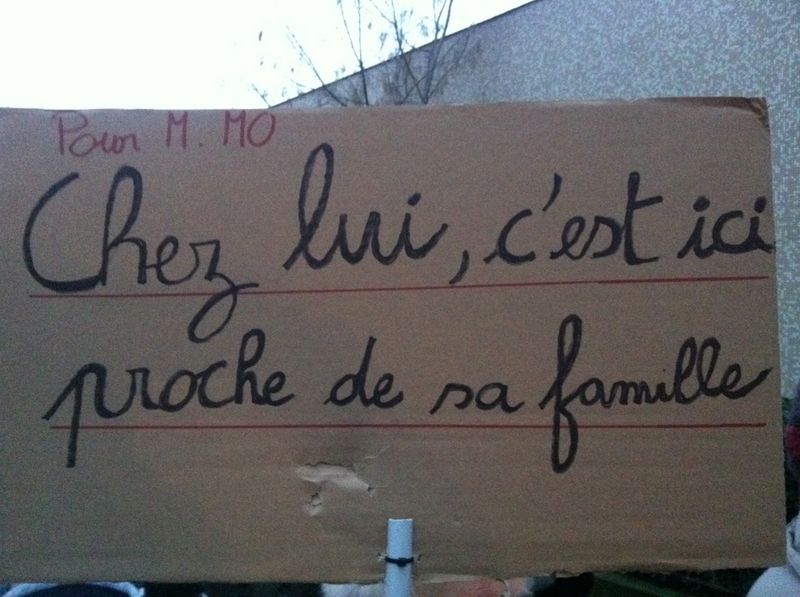 Pour M. MO
Chez lui, c'est ici
proche de sa famille